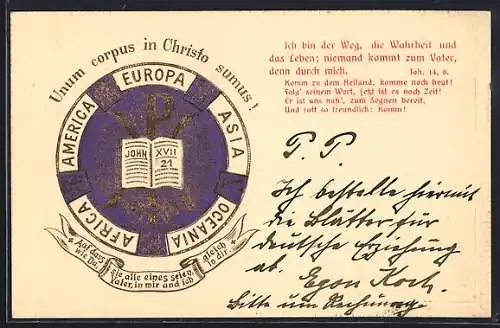 Unum corpus in Christo sumus!
EUROPA
ASIA
OCEANIA
AFRICA
AMERICA
JOHN XVII
21
Auf dass sie alle eines seien, gleich
wie Du, Vater, in mir und ich in dir.
Ich bin der Weg, die Wahrheit und
das Leben; niemand kommt zum Vater,
denn durch mich. Joh. 14, 6.
Komm zu dem Heiland, komme noch heut!
Folg' seinem Wort, jetzt ist es noch Zeit!
Er ist uns nah', zum Segnen bereit,
Und ruft so freundlich: Komm!
P. P.
Ich bestelle hiermit
die Blätter für
deutsche Erziehung
ab. Egon Koch.
Bitte um Rechnung.